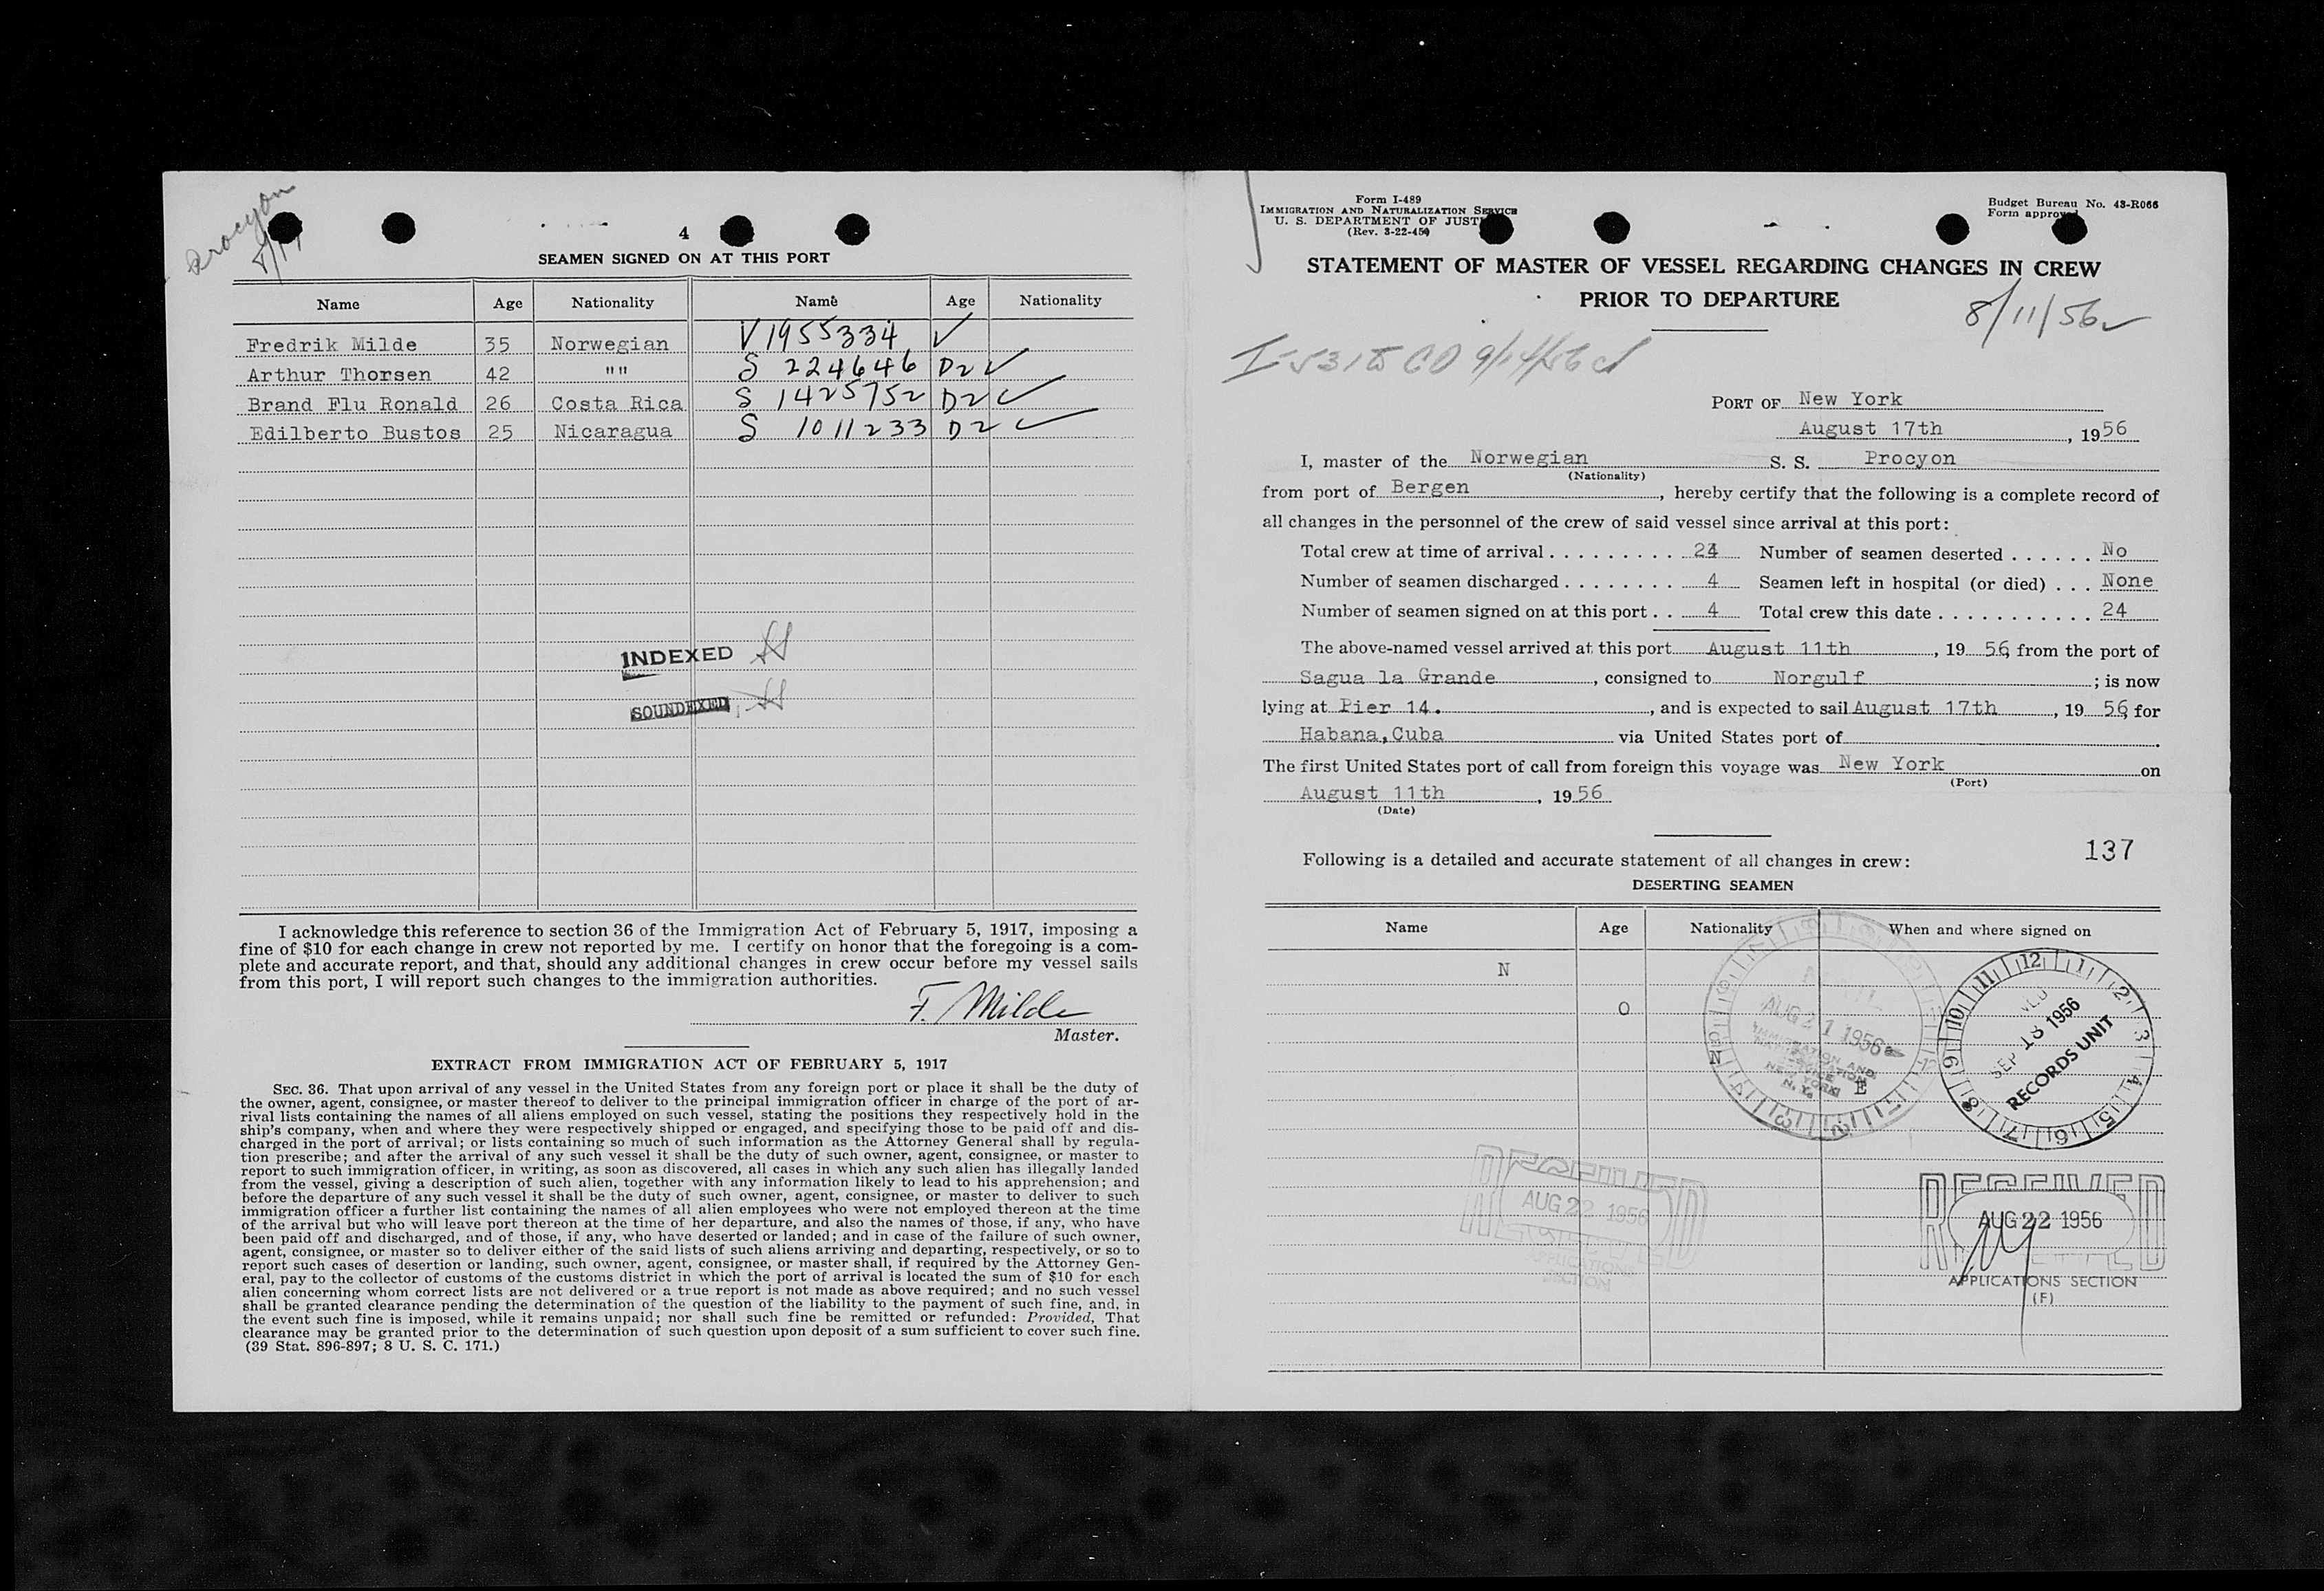 Procyon
8/17
4
SEAMEN SIGNED ON AT THIS PORT
Name Age Nationality Name Age Nationality
Fredrik Milde 35 Norwegian V 1955334 ✓
Arthur Thorsen 42 "" S 224646 D2 ✓
Brand Flu Ronald 26 Costa Rica S 1425752 D2 ✓
Edilberto Bustos 25 Nicaragua S 1011233 D2 ✓
INDEXED
SOUNDEXED
I acknowledge this reference to section 36 of the Immigration Act of February 5, 1917, imposing a
fine of $10 for each change in crew not reported by me. I certify on honor that the foregoing is a com-
plete and accurate report, and that, should any additional changes in crew occur before my vessel sails
from this port, I will report such changes to the immigration authorities.
F. Milde
Master.
EXTRACT FROM IMMIGRATION ACT OF FEBRUARY 5, 1917
SEC. 36. That upon arrival of any vessel in the United States from any foreign port or place it shall be the duty of
the owner, agent, consignee, or master thereof to deliver to the principal immigration officer in charge of the port of ar-
rival lists containing the names of all aliens employed on such vessel, stating the positions they respectively hold in the
ship's company, when and where they were respectively shipped or engaged, and specifying those to be paid off and dis-
charged in the port of arrival; or lists containing so much of such information as the Attorney General shall by regula-
tion prescribe; and after the arrival of any such vessel it shall be the duty of such owner, agent, consignee, or master to
report to such immigration officer, in writing, as soon as discovered, all cases in which any such alien has illegally landed
from the vessel, giving a description of such alien, together with any information likely to lead to his apprehension; and
before the departure of any such vessel it shall be the duty of such owner, agent, consignee, or master to deliver to such
immigration officer a further list containing the names of all alien employees who were not employed thereon at the time
of the arrival but who will leave port thereon at the time of her departure, and also the names of those, if any, who have
been paid off and discharged, and of those, if any, who have deserted or landed; and in case of the failure of such owner,
agent, consignee, or master so to deliver either of the said lists of such aliens arriving and departing, respectively, or so to
report such cases of desertion or landing, such owner, agent, consignee, or master shall, if required by the Attorney Gen-
eral, pay to the collector of customs of the customs district in which the port of arrival is located the sum of $10 for each
alien concerning whom correct lists are not delivered or a true report is not made as above required; and no such vessel
shall be granted clearance pending the determination of the question of the liability to the payment of such fine, and, in
the event such fine is imposed, while it remains unpaid; nor shall such fine be remitted or refunded: Provided, That
clearance may be granted prior to the determination of such question upon deposit of a sum sufficient to cover such fine.
(39 Stat. 896-897; 8 U. S. C. 171.)
Form I-489
IMMIGRATION AND NATURALIZATION SERVICE
U. S. DEPARTMENT OF JUST
(Rev. 3-22-45)
Budget Bureau No. 43-R066
Form approved
STATEMENT OF MASTER OF VESSEL REGARDING CHANGES IN CREW
PRIOR TO DEPARTURE
8/11/56 ✓
PORT OF New York
August 17th, 1956
I, master of the Norwegian S. S. Procyon
(Nationality)
from port of Bergen, hereby certify that the following is a complete record of
all changes in the personnel of the crew of said vessel since arrival at this port:
Total crew at time of arrival . . . . . . . . . . 24 Number of seamen deserted . . . . . . No
Number of seamen discharged . . . . . . . . 4 Seamen left in hospital (or died) . . . None
Number of seamen signed on at this port . . 4 Total crew this date . . . . . . . . . . . 24
The above-named vessel arrived at this port August 11th, 19 56, from the port of
Sagua la Grande, consigned to Norgulf; is now
lying at Pier 14., and is expected to sail August 17th, 19 56, for
Habana, Cuba via United States port of
The first United States port of call from foreign this voyage was New York on
(Port)
August 11th, 1956
(Date)
137
Following is a detailed and accurate statement of all changes in crew:
DESERTING SEAMEN
Name Age Nationality When and where signed on
N
O
N
E
AUG 21 1956
IMMIGRATION AND
NEW YORK
N. Y.
12 1 2 3 4 5 6 7 8 9 10 11
SEP 18 1956
RECORDS UNIT
RECEIVED
AUG 22 1956
APPLICATIONS
SECTION
RECEIVED
AUG 22 1956
APPLICATIONS SECTION
(F)